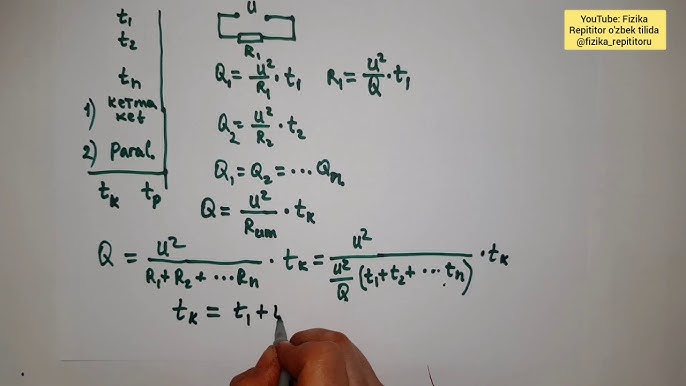 YouTube: Fizika
Repititor o'zbek tilida
@fizika_repititoru
t₁
t₂
tₙ
1) кетма
кет
2) Paral.
tₖ tₚ
U
R₁
Q₁ = U²/R₁ · t₁ R₁ = U²/Q · t₁
Q₂ = U²/R₂ · t₂
Q₁ = Q₂ = ... Qₙ
Q = U²/Rum · tₖ
Q = U²/(R₁ + R₂ + ... Rₙ) · tₖ = U²/(U²/Q (t₁ + t₂ + ... tₙ)) · tₖ
tₖ = t₁ +